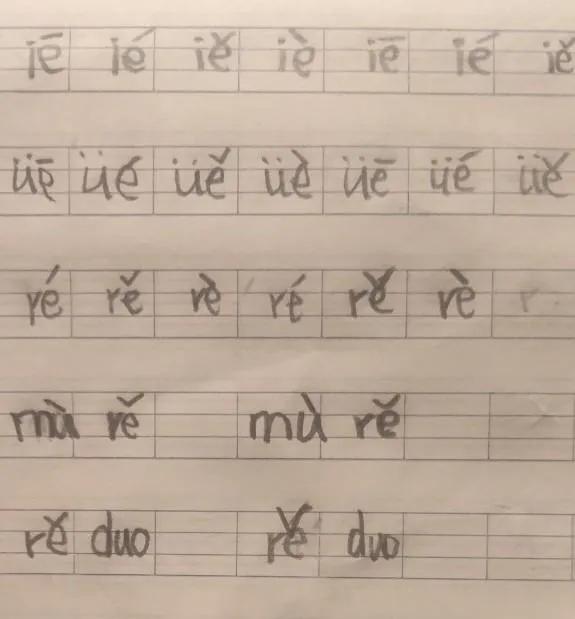 iē ié iě iè iē ié iě
üē üé üě üè üē üé üě
ré rě rè ré rě rè r
mù rě mù rě
rě duo rě duo